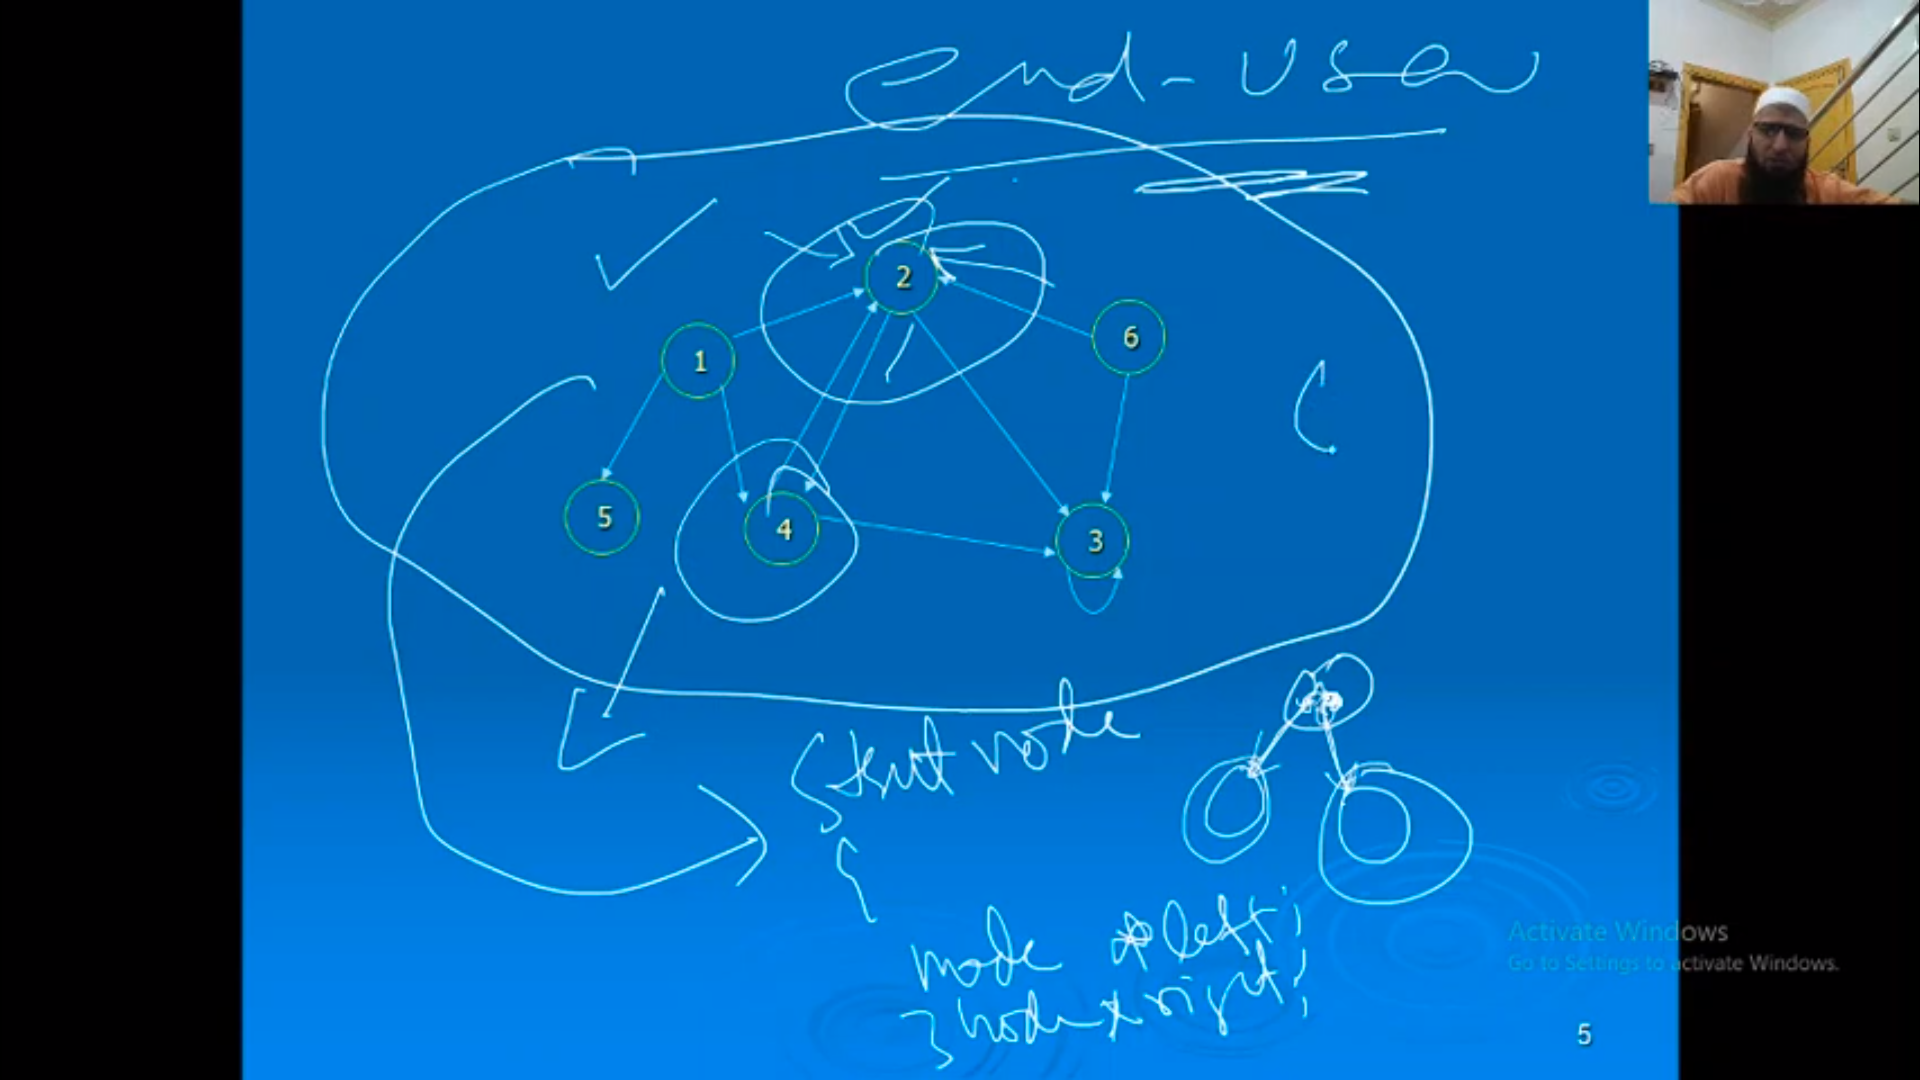 end-user
2
6
1
5
4
3
struct node
{
node *left;
} node *right;
Activate Windows
Go to Settings to activate Windows.
5